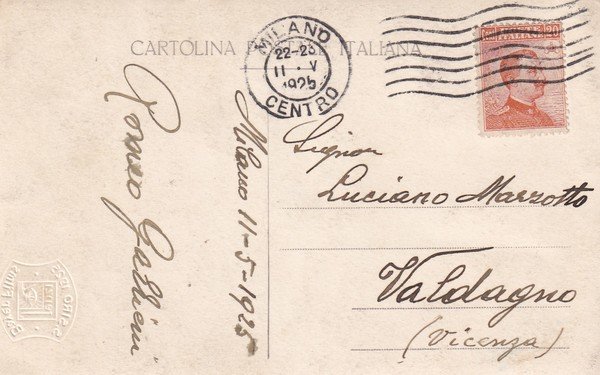 CARTOLINA ITALIANA
MILANO
22-23
11 · V
1925
CENTRO
POSTE ITALIANE 20
Milano 11-5-1925
Signor
Luciano Marzotto
Valdagno
(Vicenza)